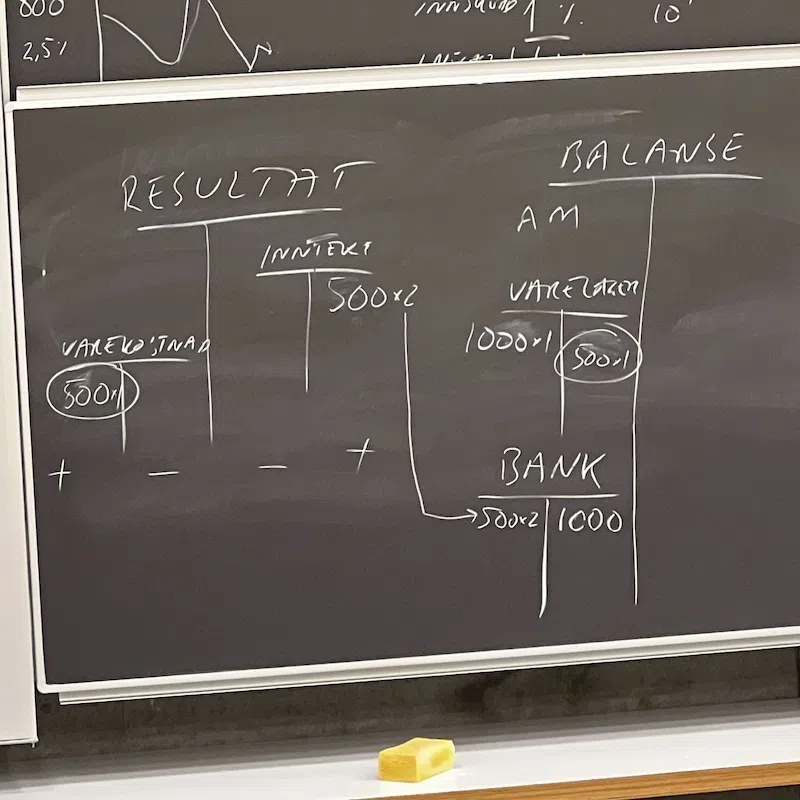 800
2,5%
%
10
RESULTAT
INNTEKT
500×2
VAREKOSTNAD
500×1
+ − − +
BALANSE
AM
VARELAGER
1000×1 500×1
BANK
500×2 1000